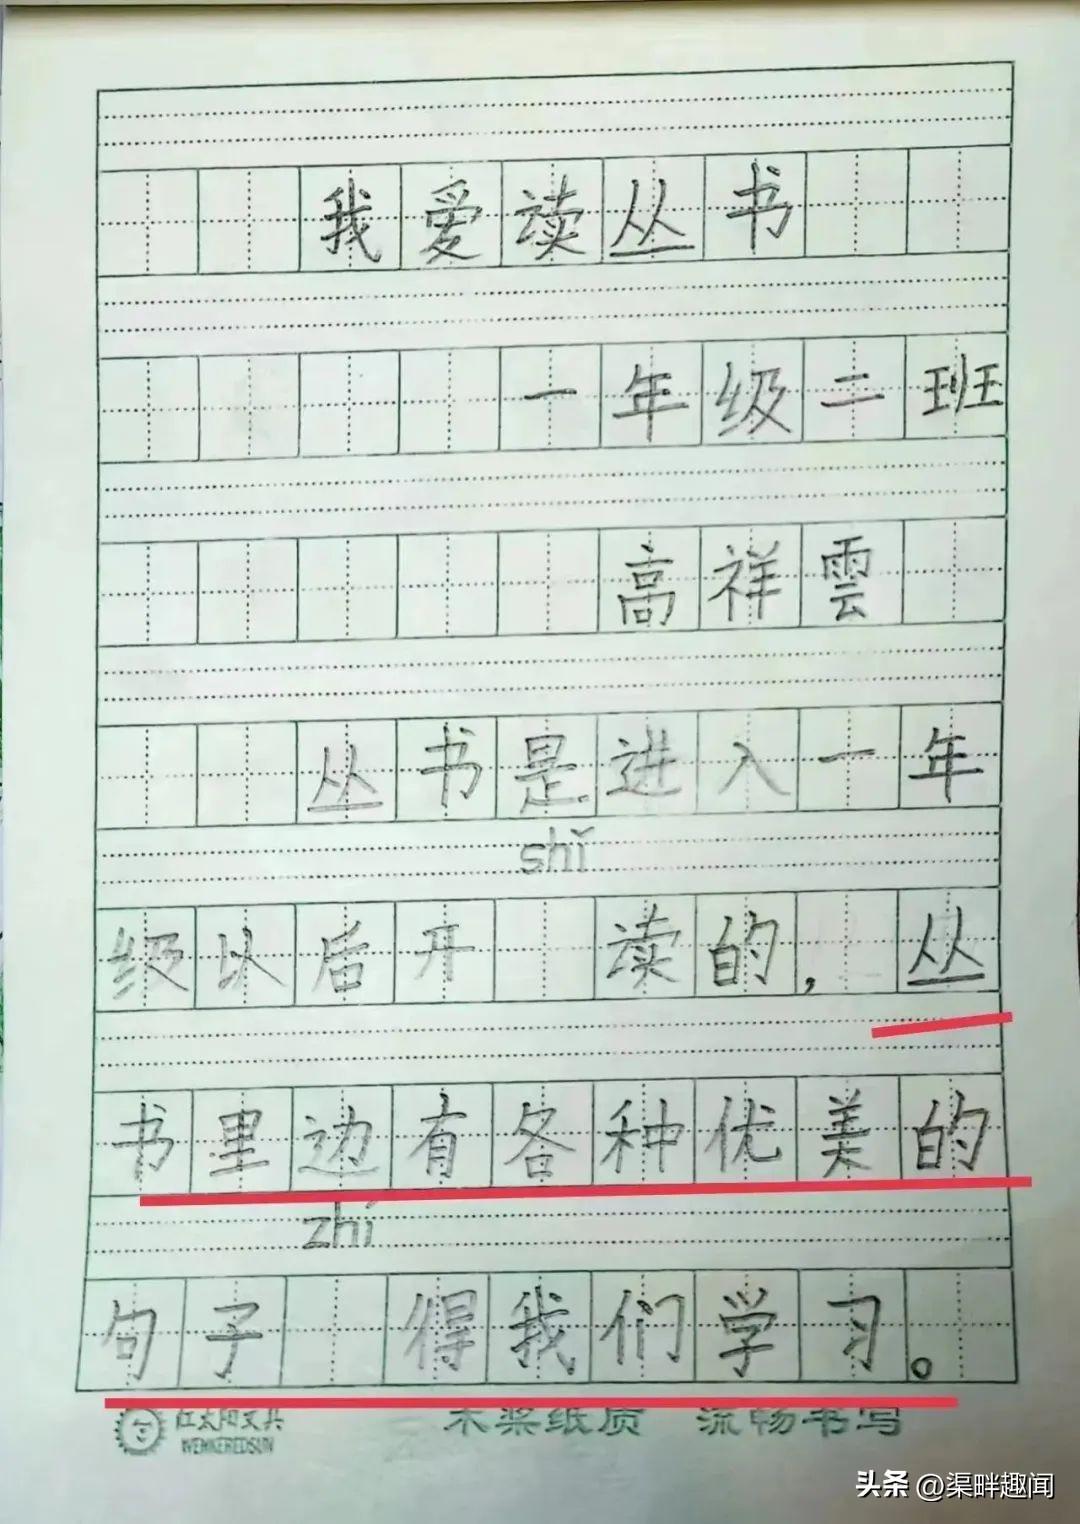 我爱读丛书
一年级二班
高祥雲
丛书是进入一年
shǐ
级以后开 读的，丛
书里边有各种优美的
zhí
句子 得我们学习。
红太阳文具
WENKEREDSUN
木浆纸质 流畅书写
头条 @渠畔趣闻